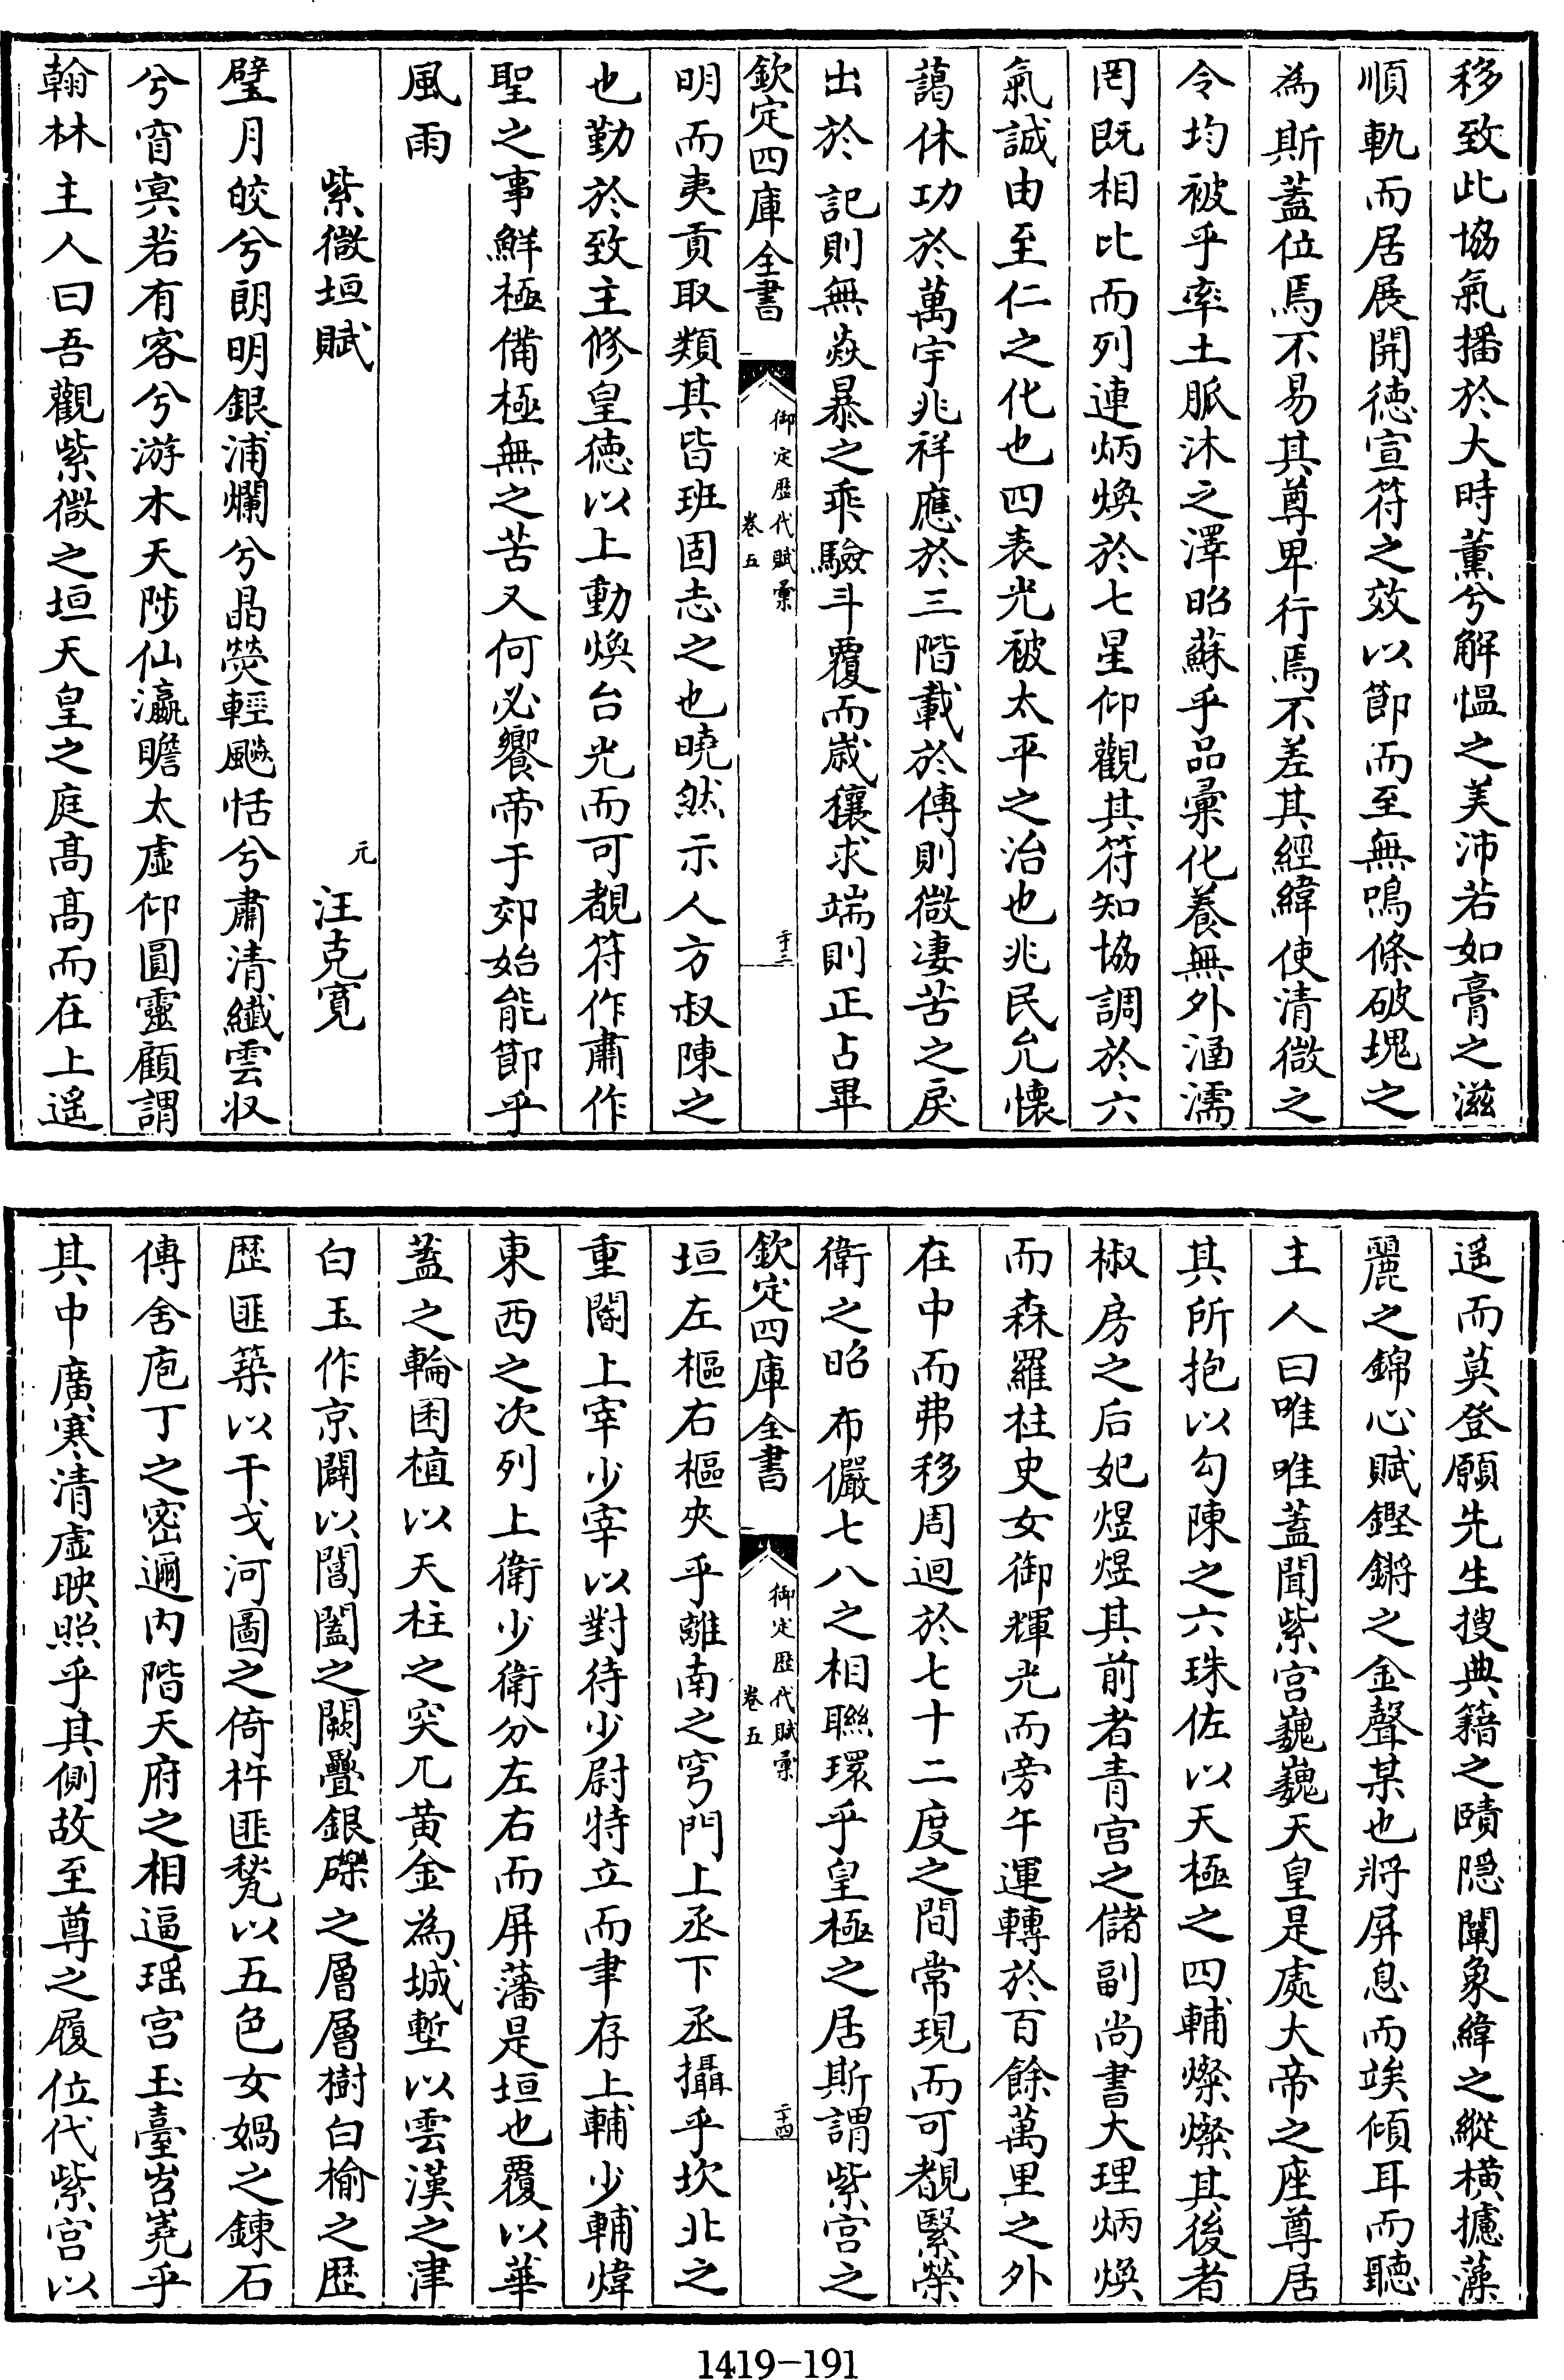 移致此協氣播於大時薰兮解愠之美沛若如膏之滋
順軌而居展開徳宣符之效以節而至無鳴條破塊之
為斯蓋位焉不易其尊卑行焉不差其經緯使清微之
令均被乎率土脈沐之澤昭蘇乎品彚化養無外涵濡
罔既相比而列連炳煥於七星仰觀其符知協調於六
氣誠由至仁之化也四表光被太平之治也兆民允懐
藹休功於萬宇兆祥應於三階載於傳則微凄苦之戾
出於記則無焱暴之乖驗斗覆而嵗穰求端則正占畢
欽定四庫全書
御定歴代賦彚
卷五
二十三
明而夷貢取類其皆班固志之也曉然示人方叔陳之
也勤於致主修皇徳以上動煥台光而可覩符作肅作
聖之事鮮極備極無之苦又何必饗帝于郊始能節乎
風雨
紫微垣賦
元
汪克寛
璧月皎兮朗明銀浦爛兮晶熒輕飈恬兮肅清纖雲收
兮窅冥若有客兮游木天陟仙瀛瞻太虚仰圓靈顧謂
翰林主人曰吾觀紫微之垣天皇之庭髙髙而在上遥
遥而莫登願先生搜典籍之賾隠闡象緯之縱橫攄藻
麗之錦心賦鏗鏘之金聲某也將屏息而竢傾耳而聽
主人曰唯唯蓋聞紫宫巍巍天皇是處大帝之座尊居
其所抱以勾陳之六珠佐以天極之四輔燦燦其後者
椒房之后妃煜煜其前者青宫之儲副尚書大理炳煥
而森羅柱史女御輝光而旁午運轉於百餘萬里之外
在中而弗移周迴於七十二度之間常現而可覩緊榮
衛之昭布儼七八之相聯環乎皇極之居斯謂紫宫之
欽定四庫全書
御定歴代賦彚
卷五
二十四
垣左樞右樞夾乎離南之穹門上丞下丞攝乎坎北之
重閽上宰少宰以對待少尉特立而聿存上輔少輔煒
東西之次列上衛少衛分左右而屏藩是垣也覆以華
蓋之輪囷植以天柱之突兀黄金為城塹以雲漢之津
白玉作京闢以閶闔之闕疊銀礫之層層樹白榆之歴
歴匪築以干戈河圖之倚杵匪甃以五色女媧之鍊石
傳舍庖丁之密邇内階天府之相逼瑶宫玉臺岧嶤乎
其中廣寒清虚映照乎其側故至尊之履位代紫宫以
1419-191